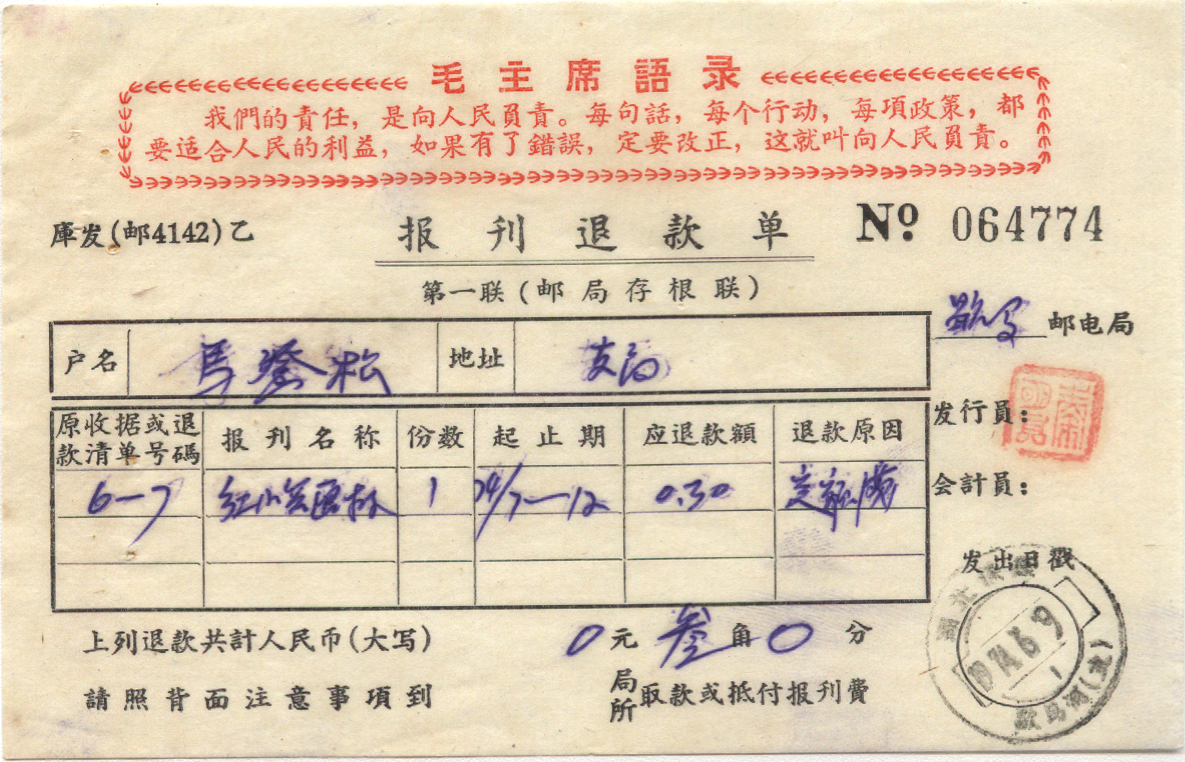 毛主席語录
我們的責任，是向人民負責。每句話，每个行动，每項政策，都
要适合人民的利益，如果有了錯誤，定要改正，这就叫向人民負責。
庫发(邮4142)乙 报刊退款单 Nº 064774
第一联(邮局存根联)
歇马 邮电局
户名 马登松 地址 支局
发行員：
原收据或退款清单号碼 报刊名称 份数 起止期 应退款額 退款原因
6-7 红小兵画 1 74/7-12 0.30
会計員：
发出日戳
上列退款共計人民币(大写) 0元叁角0分
請照背面注意事項到 局所 取款或抵付报刊費
湖北保康
1974.6.19
歇马河(支)